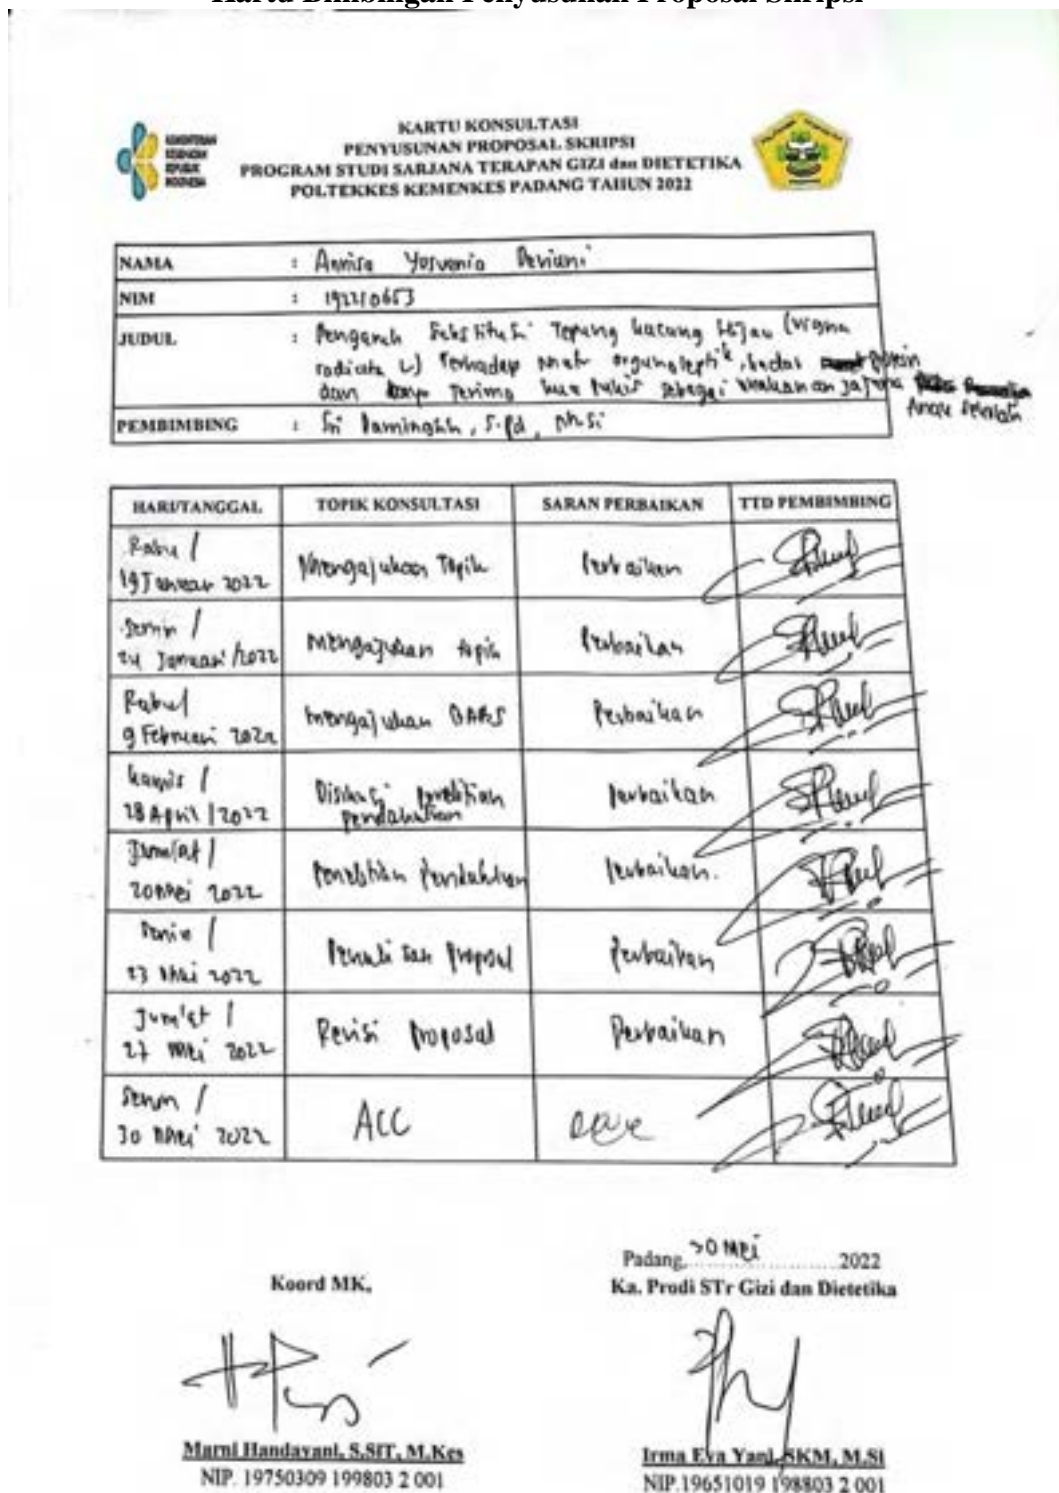 Kartu Bimbingan Penyusunan Proposal Skripsi
KEMENTERIAN
KESEHATAN
REPUBLIK
INDONESIA
KARTU KONSULTASI
PENYUSUNAN PROPOSAL SKRIPSI
PROGRAM STUDI SARJANA TERAPAN GIZI dan DIETETIKA
POLTEKKES KEMENKES PADANG TAHUN 2022
NAMA : Annisa Yosvania Deviani
NIM : 192210653
JUDUL : Pengaruh Substitusi Tepung kacang Hijau (Vigna
radiata L) Terhadap organoleptik, kadar protein
dan daya Terima kue sebagai makanan jajanan
Anak Sekolah
PEMBIMBING : Sri Darningsih, S.Pd, M.Si
HARI/TANGGAL TOPIK KONSULTASI SARAN PERBAIKAN TTD PEMBIMBING
Rabu /
19 Januari 2022 Mengajukan Topik Perbaikan
Senin /
24 Januari /2022 Mengajukan topik Perbaikan
Rabu/
9 Februari 2022 Mengajukan Perbaikan
Kamis /
28 April /2022 Diskusi penelitian
pendahuluan Perbaikan
Jum'at /
20 Mei 2022 Penelitian Pendahuluan Perbaikan.
Senin /
23 Mei 2022 Penulisan Proposal Perbaikan
Jum'at /
27 Mei 2022 Revisi Proposal Perbaikan
Senin /
30 Mei 2022 ACC
Padang, 30 Mei 2022
Koord MK,
Ka. Prodi STr Gizi dan Dietetika
Marni Handayani, S.SiT, M.Kes
NIP. 19750309 199803 2 001
Irma Eva Yani, SKM, M.Si
NIP.19651019 198803 2 001